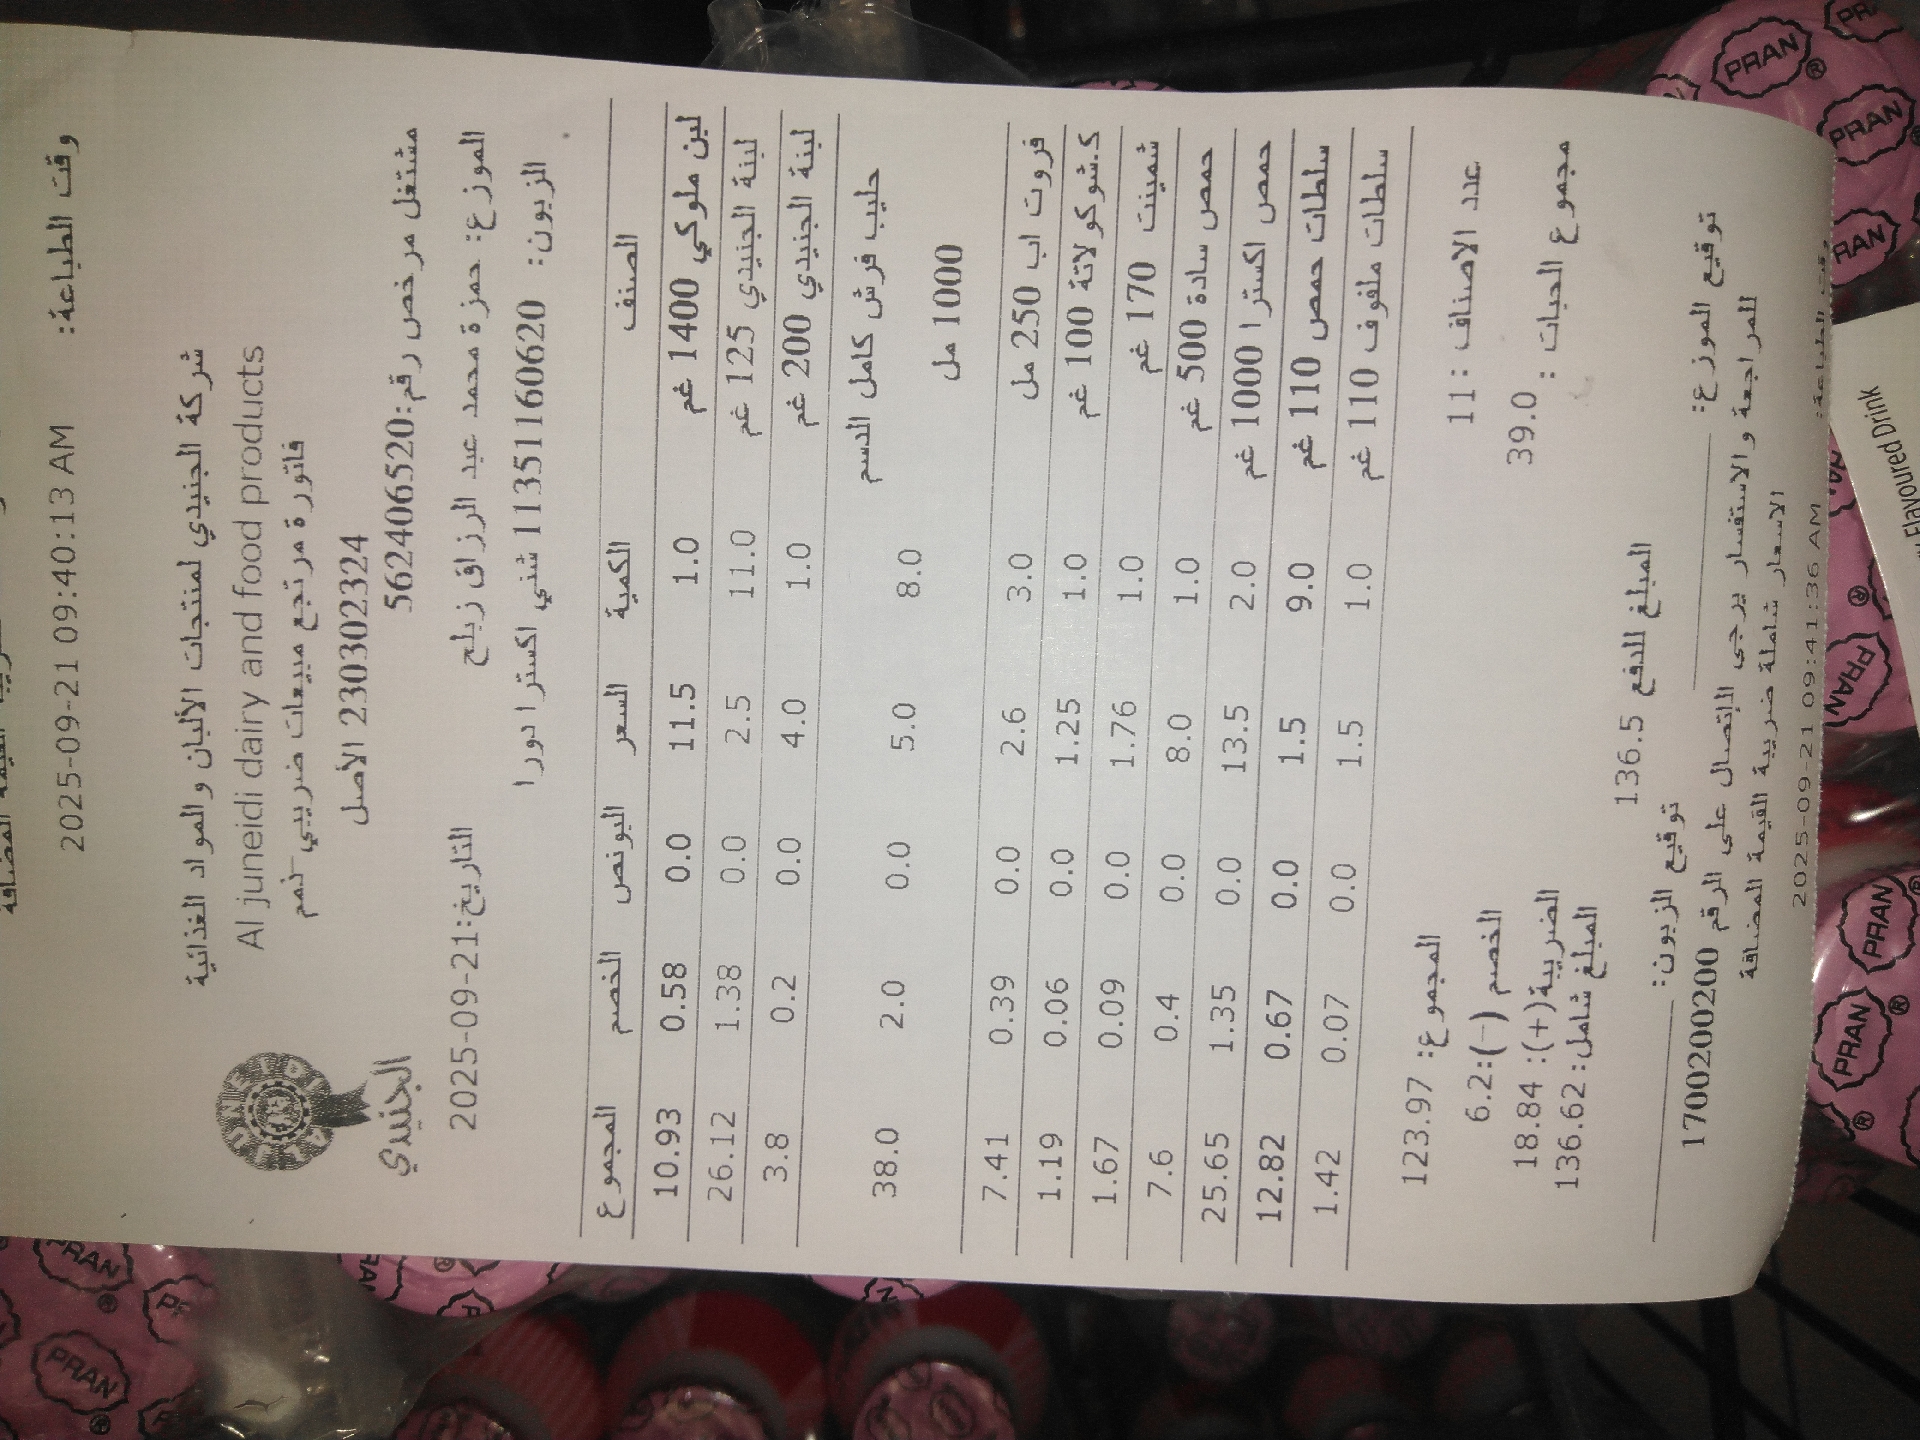 وقت الطباعة: 2025-09-21 09:40:13 AM
شركة الجنيدي لمنتجات الألبان والمواد الغذائية
Al juneidi dairy and food products
فاتورة مرتجع مبيعات ضريبي-ذمم
230302324 الأصل
مشتغل مرخص رقم:562406520
الجنيدي
الموزع: حمزة محمد عبد الرزاق زبلح
التاريخ:2025-09-21
الزبون: 11351160620 شني اكسترا دورا
الصنف الكمية السعر البونص الخصم المجموع
لبن ملوكي 1400 غم 1.0 11.5 0.0 0.58 10.93
لبنة الجنيدي 125 غم 11.0 2.5 0.0 1.38 26.12
لبنة الجنيدي 200 غم 1.0 4.0 0.0 0.2 3.8
حليب فرش كامل الدسم 8.0 5.0 0.0 2.0 38.0
1000 مل
فروت اب 250 مل 3.0 2.6 0.0 0.39 7.41
ك.شوكولاتة 100 غم 1.0 1.25 0.0 0.06 1.19
شمينت 170 غم 1.0 1.76 0.0 0.09 1.67
حمص سادة 500 غم 1.0 8.0 0.0 0.4 7.6
حمص اكسترا 1000 غم 2.0 13.5 0.0 1.35 25.65
سلطات حمص 110 غم 9.0 1.5 0.0 0.67 12.82
سلطات ملفوف 110 غم 1.0 1.5 0.0 0.07 1.42
المجموع: 123.97
عدد الاصناف : 11
الخصم (-):6.2
مجموع الحبات : 39.0
الضريبة(+): 18.84
المبلغ شامل: 136.62
المبلغ للدفع 136.5
توقيع الموزع: توقيع الزبون:
للمراجعة والاستفسار يرجى الإتصال على الرقم 1700200200
الاسعار شاملة ضريبة القيمة المضافة
2025-09-21 09:41:36 AM
PRAN
PRAN
PRAN
PRAN
PRAN
PRAN
PRAN
Flavoured Drink